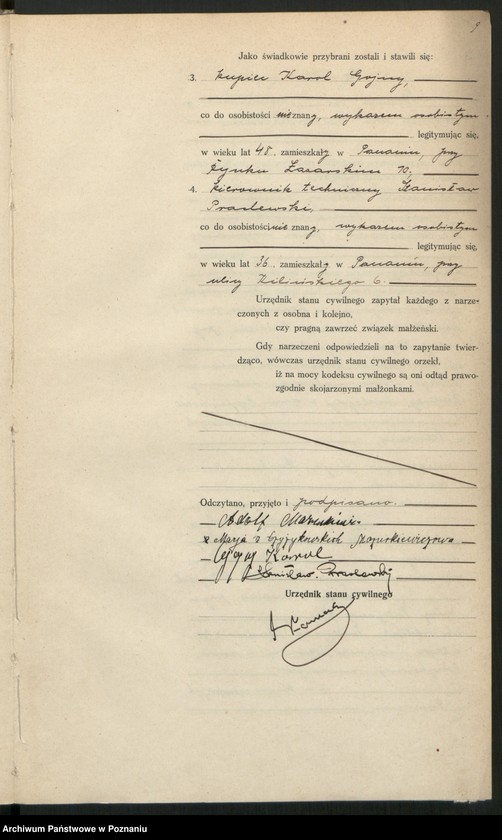 9
Jako świadkowie przybrani zostali i stawili się:
3. kupiec Karol Gojny,
co do osobistości nieznany, wykazem osobistym
legitymując się,
w wieku lat 48, zamieszkały w Poznaniu, przy
Rynku Łazarskim 10.
4. Kierownik techniczny Stanisław
Prasłewski,
co do osobistości nie znany, wykazem osobistym
legitymując się,
w wieku lat 36, zamieszkały w Poznaniu, przy
ulicy Kilińskiego 6.
Urzędnik stanu cywilnego zapytał każdego z narze-
czonych z osobna i kolejno,
czy pragną zawrzeć związek małżeński.
Gdy narzeczeni odpowiedzieli na to zapytanie twier-
dząco, wówczas urzędnik stanu cywilnego orzekł,
iż na mocy kodeksu cywilnego są oni odtąd prawo-
zgodnie skojarzonymi małżonkami.
Odczytano, przyjęto i podpisano.
Adolf
Marja z Mazurkiewiczowa
Gojny Karol
Stanisław Prasławski
Urzędnik stanu cywilnego
Archiwum Państwowe w Poznaniu